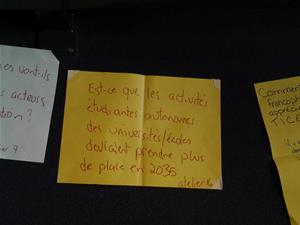 es vont-ils
s acteurs
tion ?
Est-ce que les activités
étudiantes autonomes
des universités/écoles
devraient prendre plus
de place en 2035
atelier
Comment
TICE